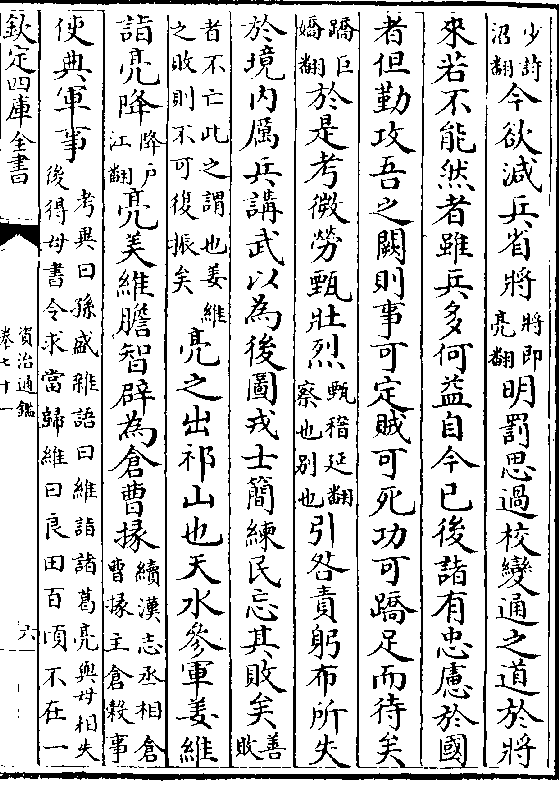 少詩沼翻今欲減兵省將將即亮翻明罰思過校變通之道於將
來若不能然者雖兵多何益自今已後諸有忠慮於國
者但勤攻吾之闕則事可定賊可死功可蹻足而待矣
蹻巨嬌翻於是考微勞甄壯烈甄稽延翻察也别也引咎責躬布所失
於境内厲兵講武以為後圖戎士簡練民忘其敗矣善敗
者不亡此之謂也姜維之敗則不可復振矣亮之出祁山也天水參軍姜維
詣亮降降户江翻亮美維膽智辟為倉曹掾續漢志丞相倉曹掾主倉榖事
使典軍事考異曰孫盛雜語曰維詣諸葛亮與母相失後得母書令求當歸維曰良田百頃不在一
欽定四庫全書
資治通鑑
卷七十一
六